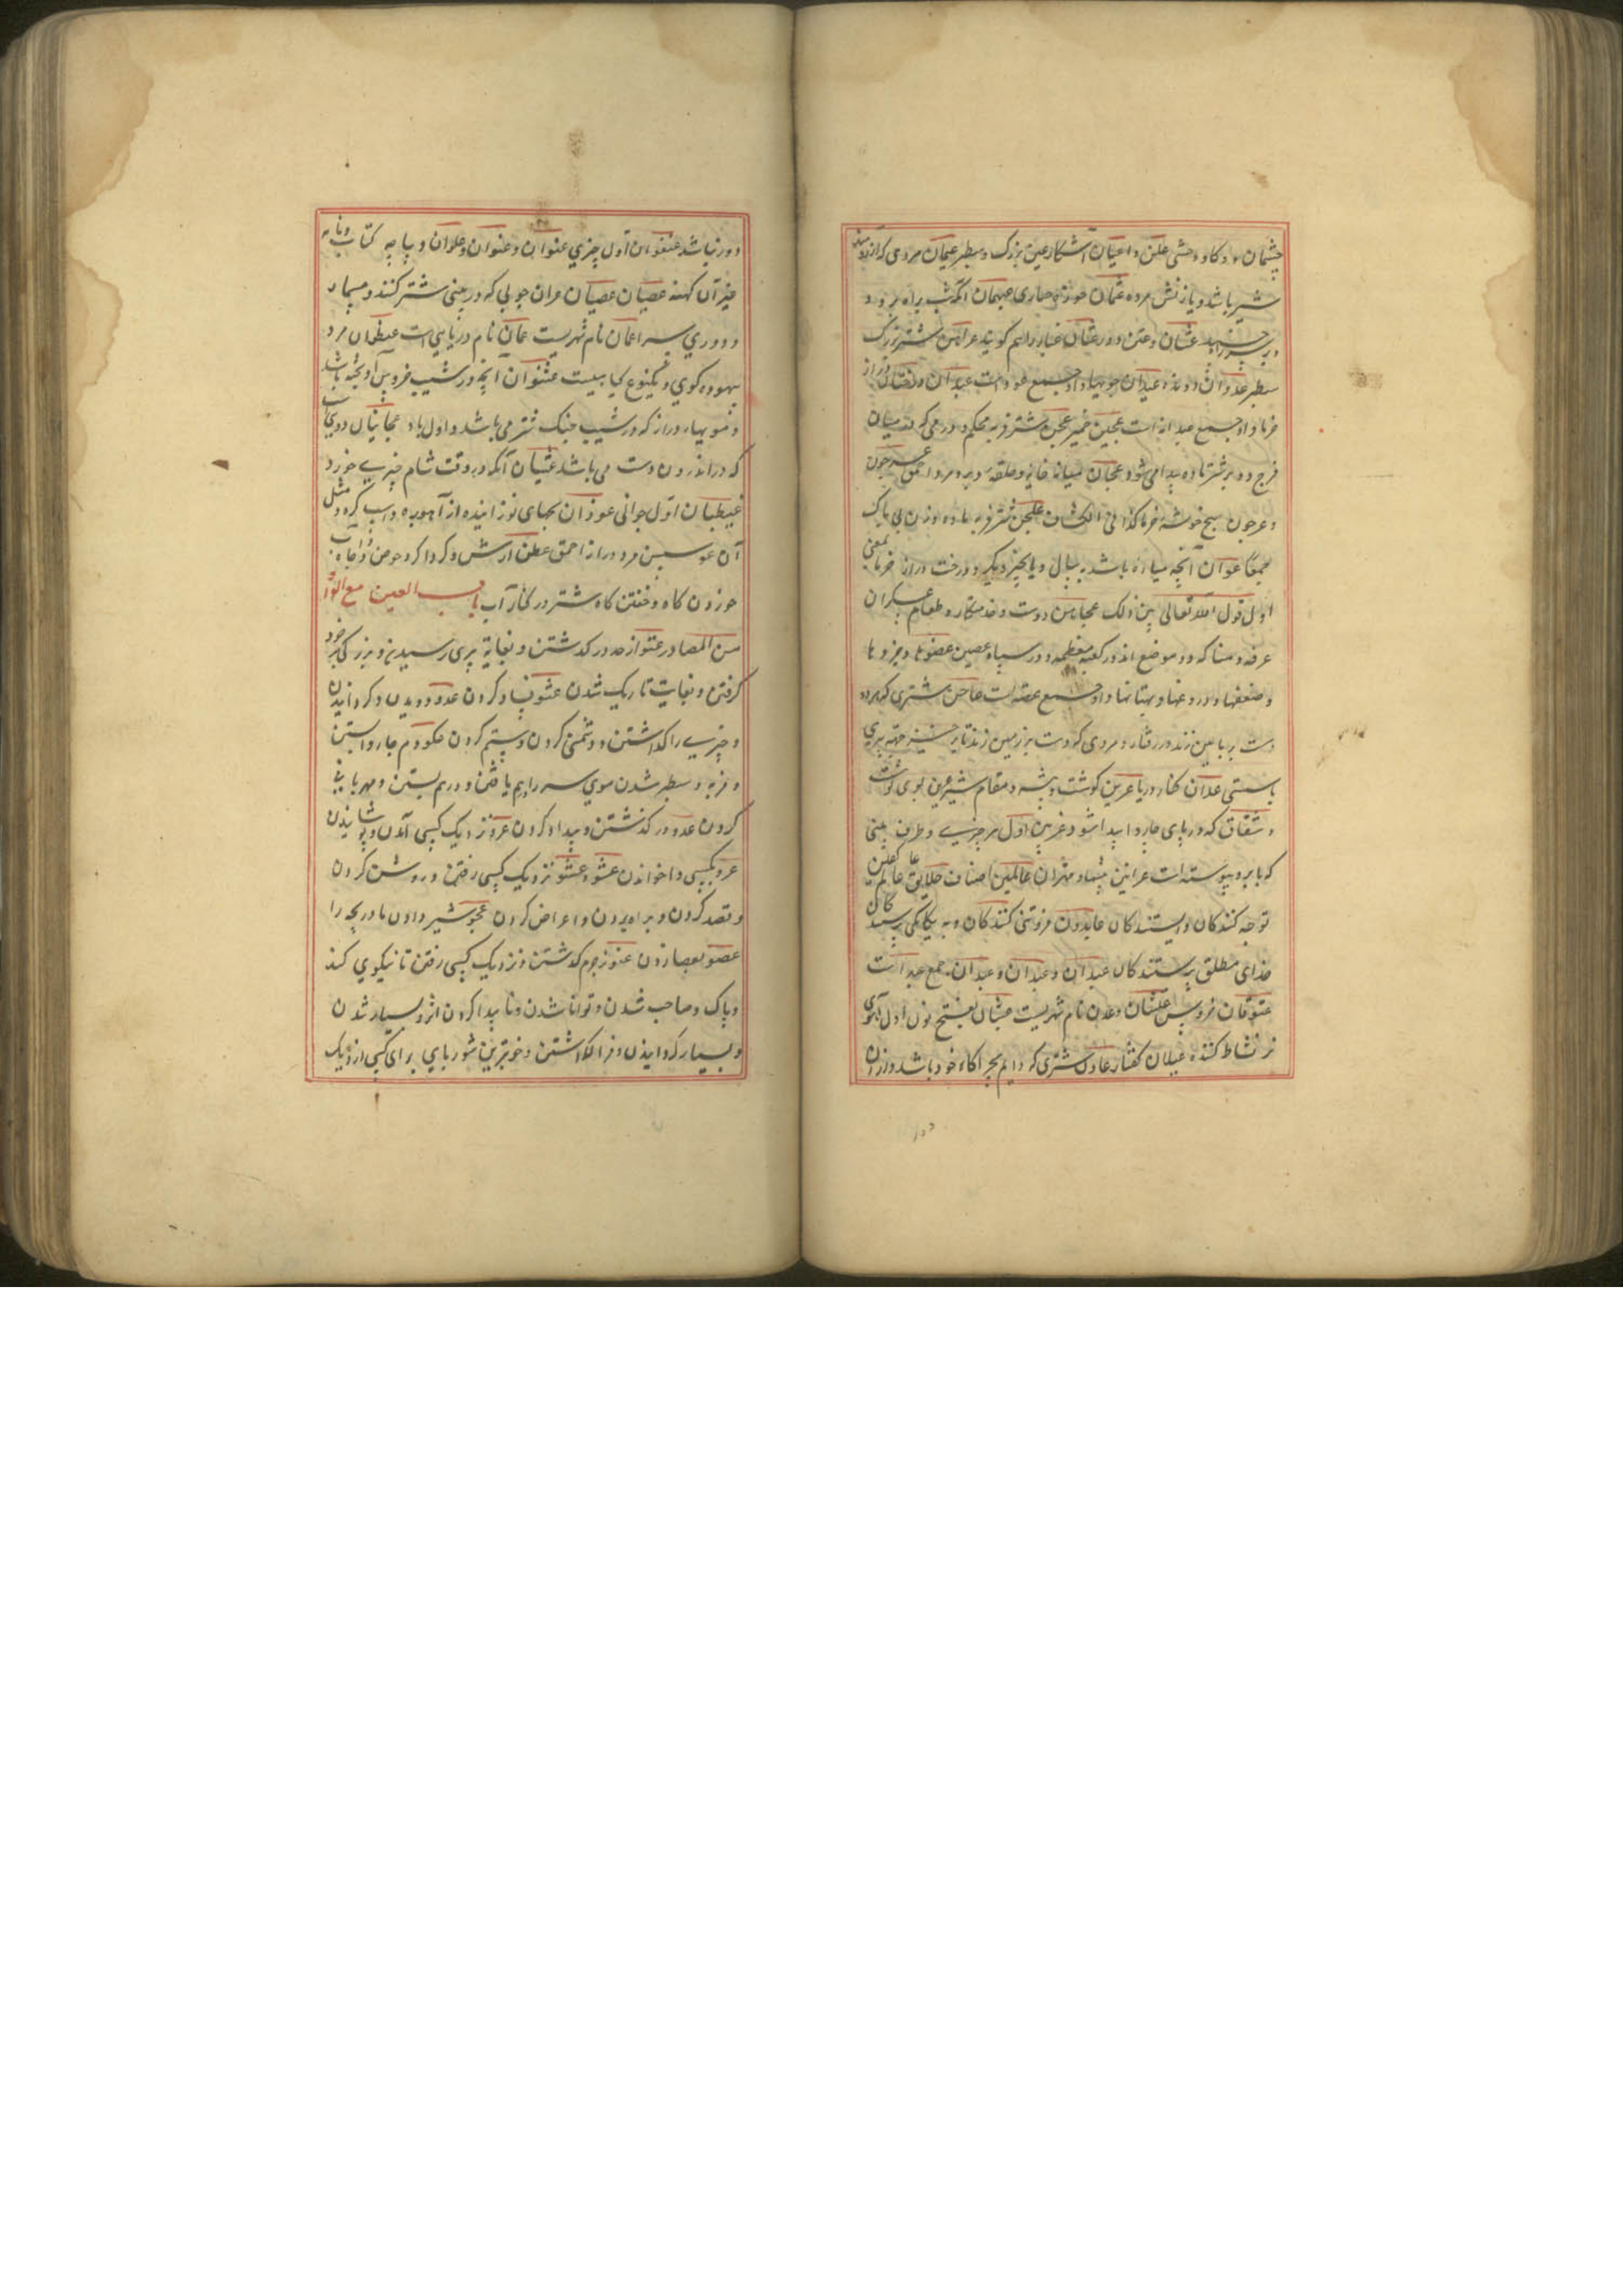 چشمان و کاو وحشی علن و اعیان آشکار عین بزرک و سطبر عیمان مردی که از
شیر باشد و یا زنش مرده عثمان جوزه حباری عیهمان آنکه شب براه نرود
عثان و عثن دود عثان غبار را هم کویند عراهن شتر بزرک
سطبر عدوان دونده عیدان چوبها واو جمع عود است عیدان درختان دراز
خرما واو جمع عیدانه است عجین خمیر عجن شتر فربه محکم و ورمی که در میان
فرج و دبر شتر ماده پیدا می شود عجان میان خایه و حلقه دبر و مرد احمق عرجون
و عرجون بیخ خوشه خرما کذا فی الکشاف علجن شتر فربه ماده و زن بی باک
عوان آنچه میانه باشد بسال و یا بچیز دیکر و درخت دراز خرما بمعنی
اول قول الله تعالی بین ذلک عجاهن دوست و خدمتکار و طعام عسکران
عرفه و منا که دو موضع اند در کعبه معظمه و دو سپاه عضین عضوها و جزوها
و ضعفها و دروغها و بهتانها واو جمع عضه است عاجن شتری که هر دو
دست بر زمین زند در رفتار و مردی که دست بر زمین زند تا برخیزد جهة پیری
یا سستی عدان کنار دریا عرین کوشت و بیشه و مقام شیر عرن بوی کوشت
و شقاق که در پای چاروا پیدا شود عرنین اول هر چیزی و طرف بینی
که بابرو پیوسته است عرانین بینیها و مهتران عالمین اصناف خلایق عالم عاکفین
توجه کنندکان و ایستندکان عابدون فروتنی کنندکان و به یکانکی پرستندکان
خدای مطلق پرستندکان عبدان و عبدان و عبدان جمع عبد است
عتوقان خروس علتان و عدن نام شهریست عنبان بفتح نون اول آهوی
نر نشاط کننده عیلان کفتار عادن شتری که دایم بچراکاه خود باشد و از آن
دور
دور نباشد عنفوان اول چیزی عنوان و عنوان و علوان دیباچه کتاب و نامه
غیر آن کهنه عصیان عصیان عران چوبی که در بینی شتر کنند و مسمار
و دوری سر اعمان نام شهریست عمان نام دریایی است عنظوان مرد
بیهوده کوی و یکنوع کیاهیست عثنوان آنچه در شیب خروس آویخته باشد
و مویهاء دراز که در شیب حنک شتر می باشد و اول باد عجانیان دو پی
که در اندرون دست می باشد عشیان آنکه در وقت شام چیزی خورد
غیطبان اول جوانی عوذان بجهای نوزاینده از آهو بره و اسب کره و مثل
آن عوسن مرد دراز احمق عطن آرش و کرداکرد حوض و چاه آب
خوردن کاه و خفتن کاه شتر در کنار آب باب العین مع الواو
من المصادر عتو از حد در کذشتن و بغایة پیری رسیدن و بزرکی بر خود
کرفتن و بغایت تاریک شدن عشو فساد کردن عدو دویدن و کردانیدن
و چیزی را کذاشتن و دشمنی کردن و ستم کردن عکو دم چاروا بستن
و فربه و سطبر شدن موی سر را بهم بافتن و درهم بستن و مهربانی
کردن عدو در کذشتن و بیداد کردن عرو نزدیک کسی آمدن و پوشانیدن
عزو بکسی واخواندن عشو و عشو نزدیک کسی رفتن و روشن کردن
و قصد کردن و براه بردن و اعراض کردن عجو شیر دادن مادر بچه را
عصو بعصا زدن عفو ز جرم کذشتن و نزدیک کسی رفتن تا نیکویی کند
و پاک و صاحب شدن و توانا شدن و ناپیدا کردن اثر و بسیار شدن
و بسیار کردانیدن و فرا کذاشتن و خوبترین شوربای برای کسی از دیک